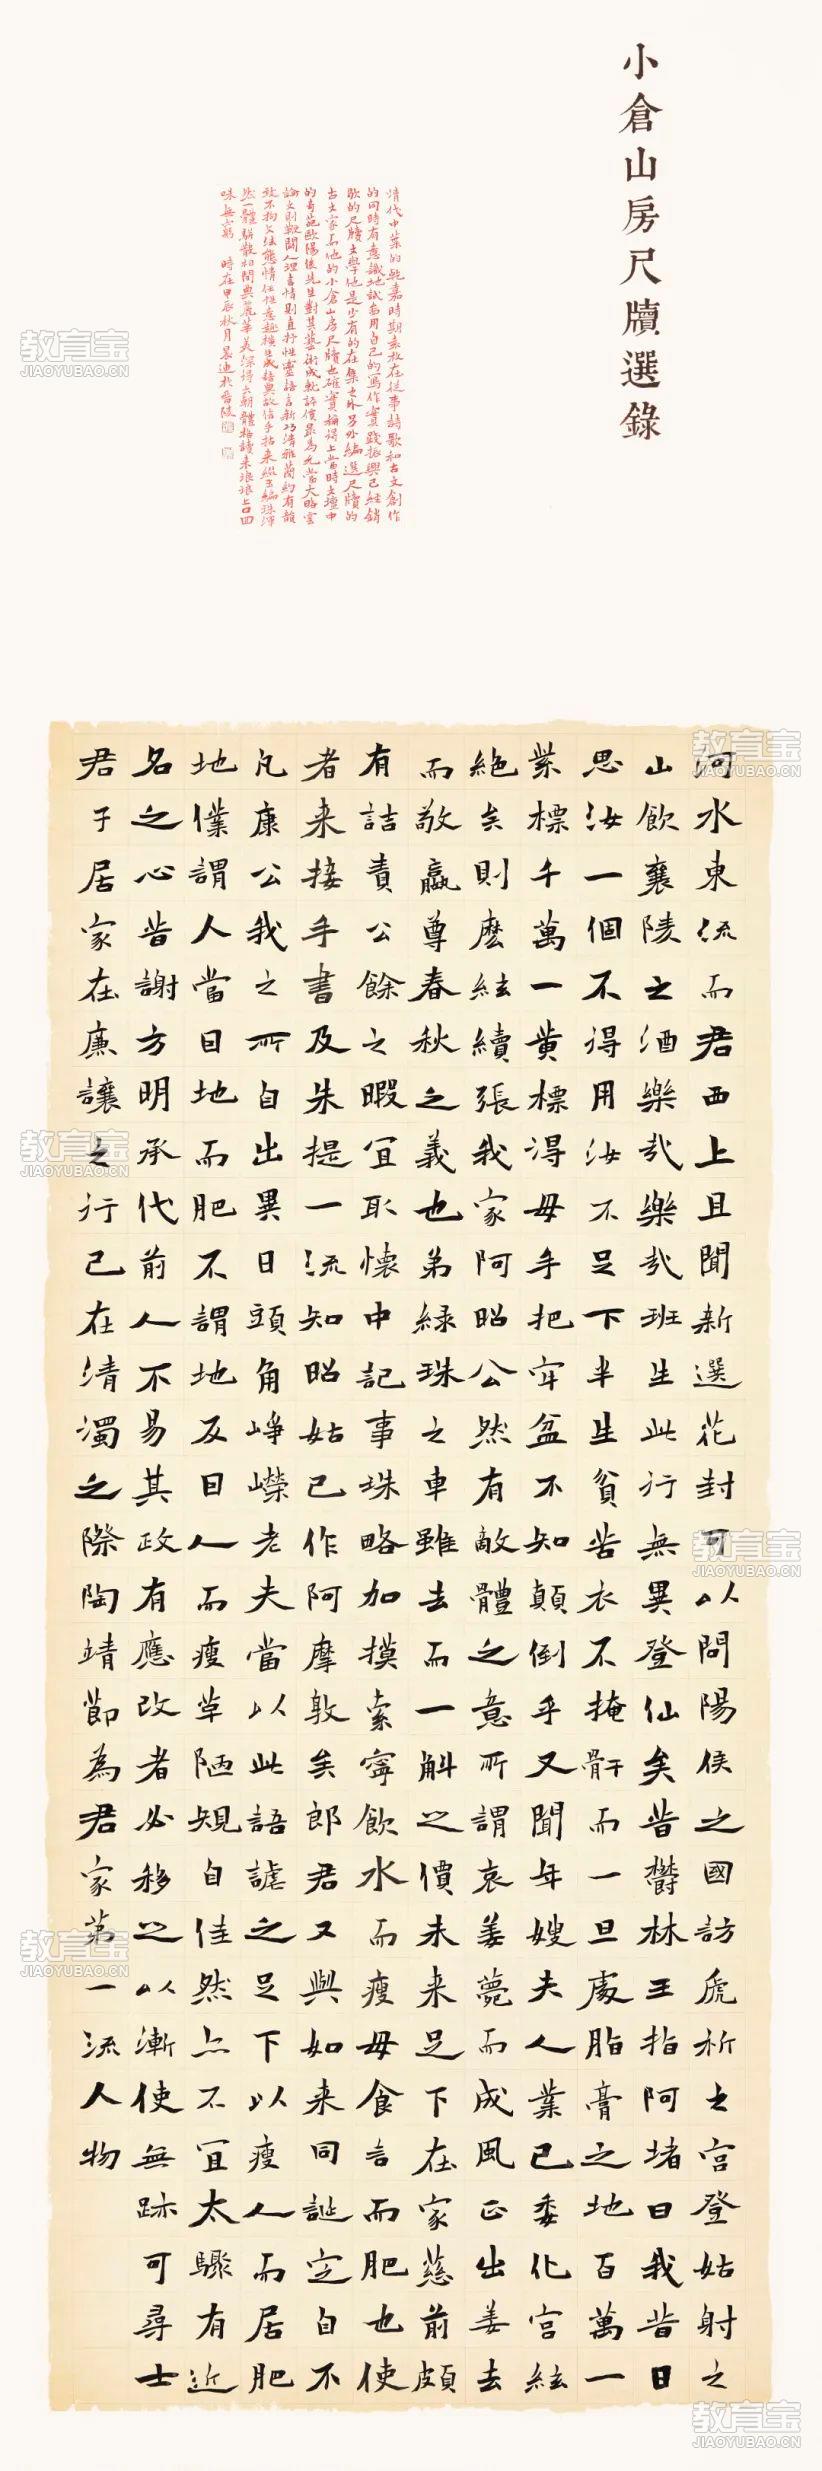 小倉山房尺牘選錄
清代中葉的乾嘉時期袁枚在從事詩歌和古文創作
的同時有意識地試著用自己的寫作實踐振興已經銷
歇的尺牘文學他是少有的在集之外另外編選尺牘的
古文家而他的小倉山房尺牘也確實稱得上當時文壇中
的奇葩歐陽俊先生對其藝術成就評價最為允當大略云
論文則鞭闢人理言情則直抒性靈語言新巧清雅蘭約有韻
致不拘文法態情任性意趣橫生成語典故信手拈來綴玉編珠渾
然一體駢散相間典麗華美深得六朝體格讀來琅琅上口回
味無窮 時在甲辰秋月晨迪於晉陵
河水東流而君西上且聞新選花封可以問陽侯之國訪虎祈之宮登姑射之
山飲襄陵之酒樂哉樂哉班生此行無異登仙矣昔鬱林王指阿堵曰我昔日
思汝一個不得用汝不足下半生貧苦衣不掩骭而一旦處脂膏之地百萬一
紫標千萬一黃標得毋手把牢盆不知顛倒乎又聞年嫂夫人業已委化宮絃
絶矣則麼絃續張我家阿昭公然有敵體之意所謂哀姜薨而成風正出姜去
而敬嬴尊春秋之義也弟綠珠之車雖去而一斛之價未来足下在家慈前頗
有詰責公餘之暇宜取懷中記事珠略加摸索寧飲水而瘦毋食言而肥也使
者来接手書及朱提一流知昭姑已作阿摩敦矣郎君又與如来同誕定自不
凡康公我之所自出異日頭角崢嶸老夫當以此語謔之足下以瘦人而居肥
地僕謂人當日地而肥不謂地反目人而瘦草陋規自佳然亦不宜太驟有近
名之心昔謝方明承代前人不易其政有應改者必移之以漸使無跡可尋士
君子居家在廉讓之行己在清濁之際陶靖節為君家第一流人物
教育宝
JIAOYUBAO.CN